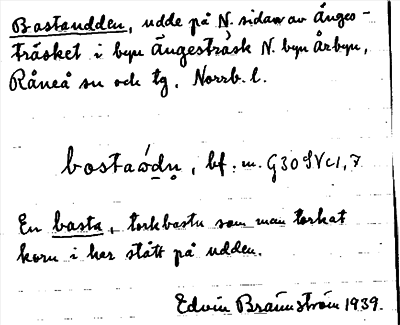 Bastaudden, udde på N. sidan av Änges-
träsket i byn Ängesträsk N. byn Årbyn,
Råneå sn och tg, Norrb. l.
bostaẃdṇ, bf. m. G30
En basta, torkbastu som man torkat
korn i har stått på udden.
Edvin Brännström 1939.